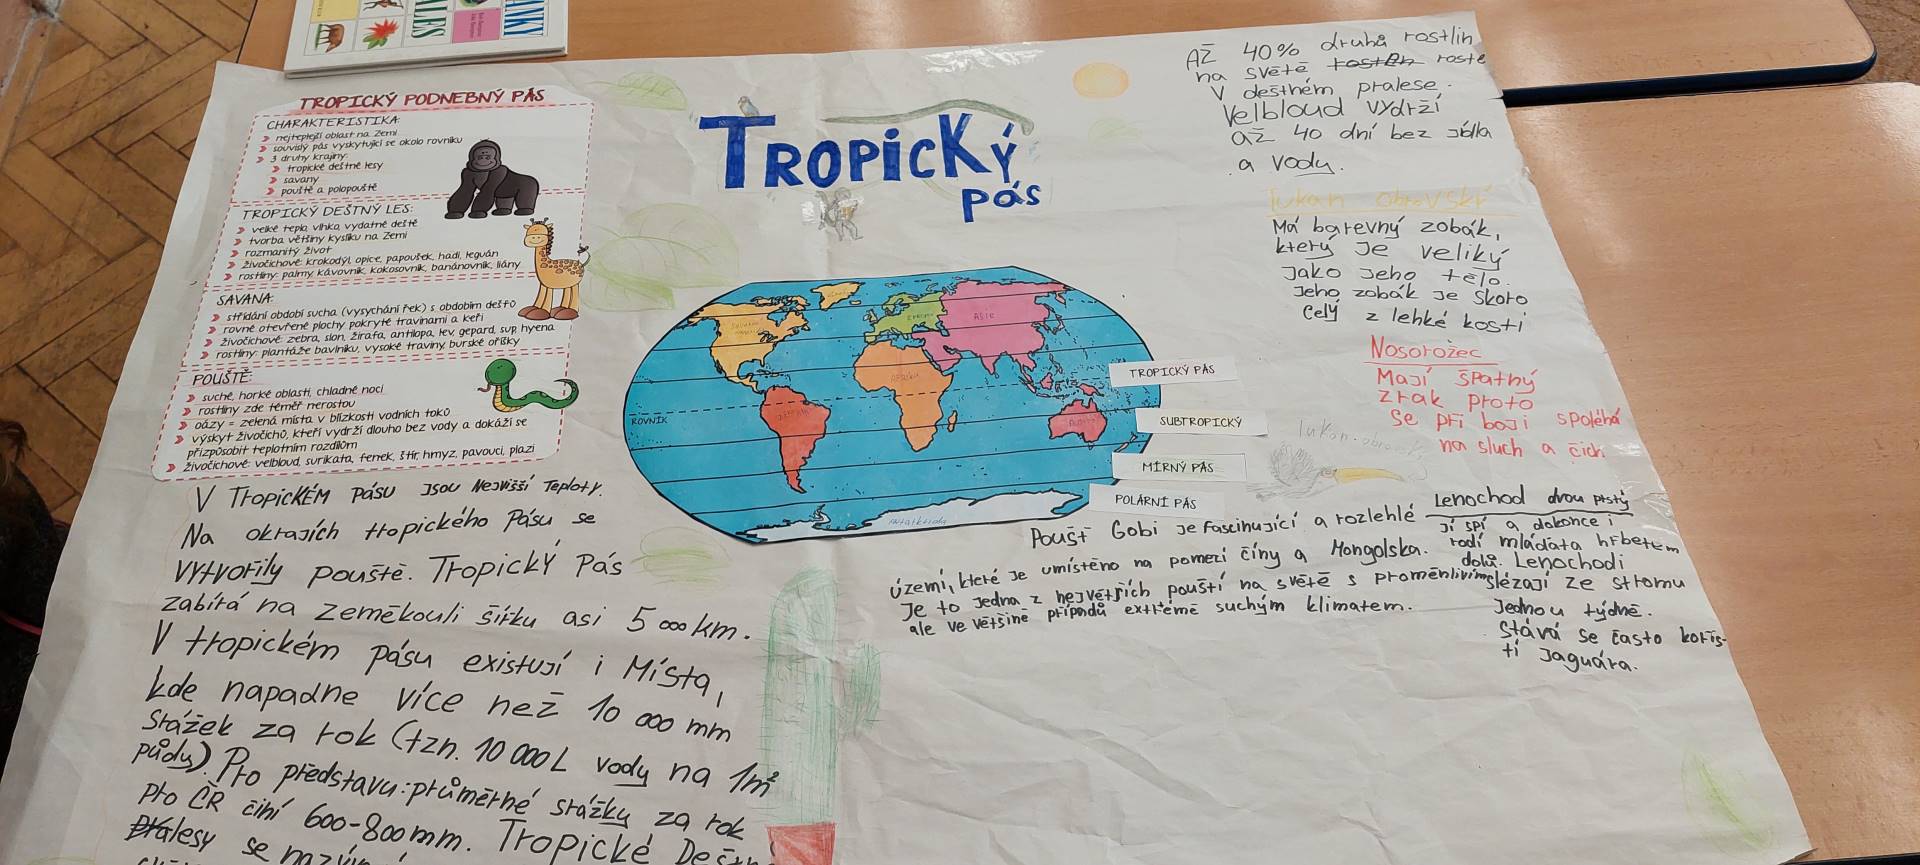 ANKY
ALES
TROPICKÝ PODNEBNÝ PÁS
CHARAKTERISTIKA:
nejteplejší oblast na Zemi
souvislý pás vyskytující se okolo rovníku
3 druhy krajiny:
tropické deštné lesy
savany
pouště a polopouště
TROPICKÝ DEŠTNÝ LES:
velké teplo, vlhko, vydatné deště
tvorba většiny kyslíku na Zemi
rozmanitý život
živočichové: krokodýl, opice, papoušek, hadi, leguán
rostliny: palmy, kávovník, kokosovník, banánovník, liány
SAVANA:
střídání období sucha (vysychání řek) s obdobím dešťů
rovné otevřené plochy pokryté travinami a keři
živočichové: zebra, slon, žirafa, antilopa, lev, gepard, sup, hyena
rostliny: plantáže bavlníku, vysoké traviny, burské oříšky
POUŠTĚ:
suché, horké oblasti, chladné noci
rostliny zde téměř nerostou
oázy = zelená místa v blízkosti vodních toků
výskyt živočichů, kteří vydrží dlouho bez vody a dokáží se
přizpůsobit teplotním rozdílům
živočichové: velbloud, surikata, fenek, štír, hmyz, pavouci, plazi
V TropicKÉM PÁSU JSOU NeJvišší Teploty.
Na okrajích tropického Pásu se
vytvořily pouště. Tropický Pás
zabírá na zeměkouli šířku asi 5 000 km.
V tropickém pásu existují i Místa,
kde napadne více než 10 000 mm
srážek za rok (tzn. 10 000L vody na 1m²
půdy). Pro představu: průměrné srážky za rok
pro ČR činí 600-800mm. Tropické Dešt
Pralesy se nazýv
TROPICKÝ
pás
ROVNÍK
AFRIKA
ASIE
EVROPA
Antarktida
TROPICKÝ PÁS
SUBTROPICKÝ
MÍRNÝ PÁS
POLÁRNÍ PÁS
AŽ 40% druhů rostlin
na světě rostlin roste
v deštném pralese.
Velbloud vydrží
až 40 dní bez jídla
a vody.
Tukan obrovský
Má barevný zobák,
který je veliký
jako jeho tělo.
Jeho zobák je skoro
celý z lehké kosti
Nosorožec
Mají špatný
zrak proto
se při boji spoléhá
na sluch a čich
tukan obrovský
Poušť Gobi je fascinující a rozlehlé
území, které je umístěno na pomezí číny a Mongolska.
Je to jedna z největších pouští na světě s proměnlivým
ale ve většině případů extrémě suchým klimatem.
Lenochod dvou prstý
Jí spí a dokonce i
rodí mláďata hřbetem
dolů. Lenochodi
slézají ze stromu
jednou týdně.
Stává se často kořis-
tí Jaguára.